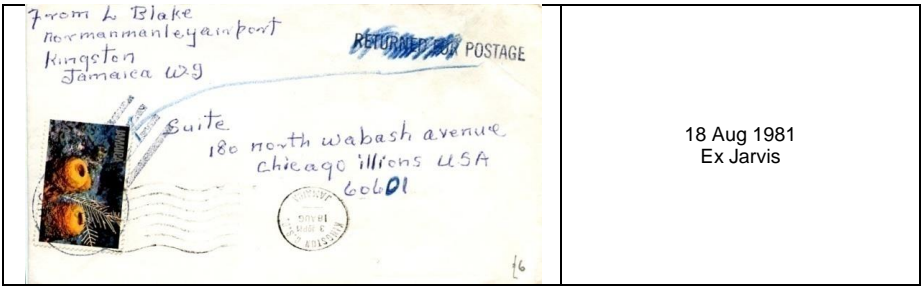 From L Blake
normanmanleyairport
Kingston
Jamaica W.I
RETURNED FOR POSTAGE
Suite
180 north wabash avenue
chicago illions USA
60601
JAMAICA
KINGSTON
3 PM
18 AUG
JAMAICA
16
18 Aug 1981
Ex Jarvis